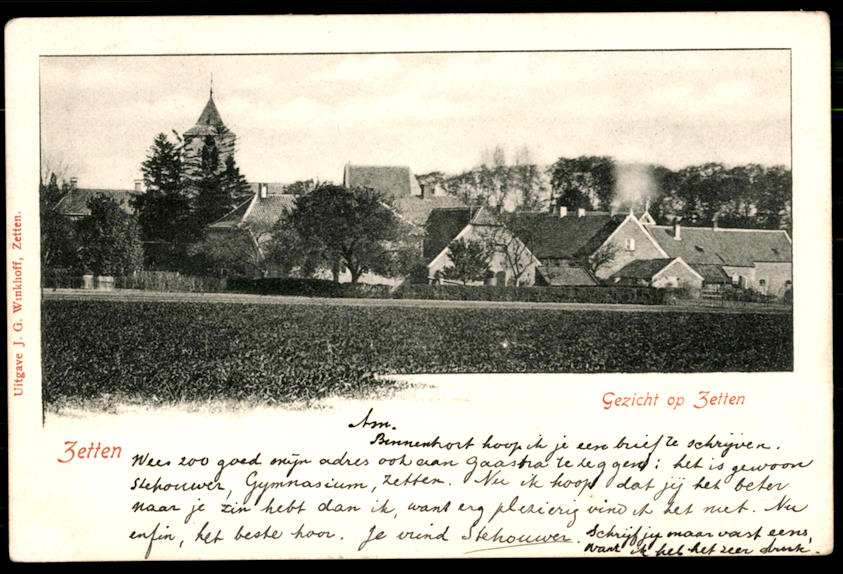 Uitgave J. G. Winkhoff, Zetten.
Gezicht op Zetten
Zetten
Am.
Binnenkort hoop ik je een brief te schrijven.
Wees zoo goed mijn adres ook aan Gaastra te zeggen: het is gewoon
Stehouwer, Gymnasium, Zetten. Nu ik hoop dat jij het beter
naar je zin hebt dan ik, want erg plezierig vind ik het niet. Nu
enfin, het beste hoor. Je vriend Stehouwer.
Schrijf jij maar vast eens,
want ik heb het zeer druk.